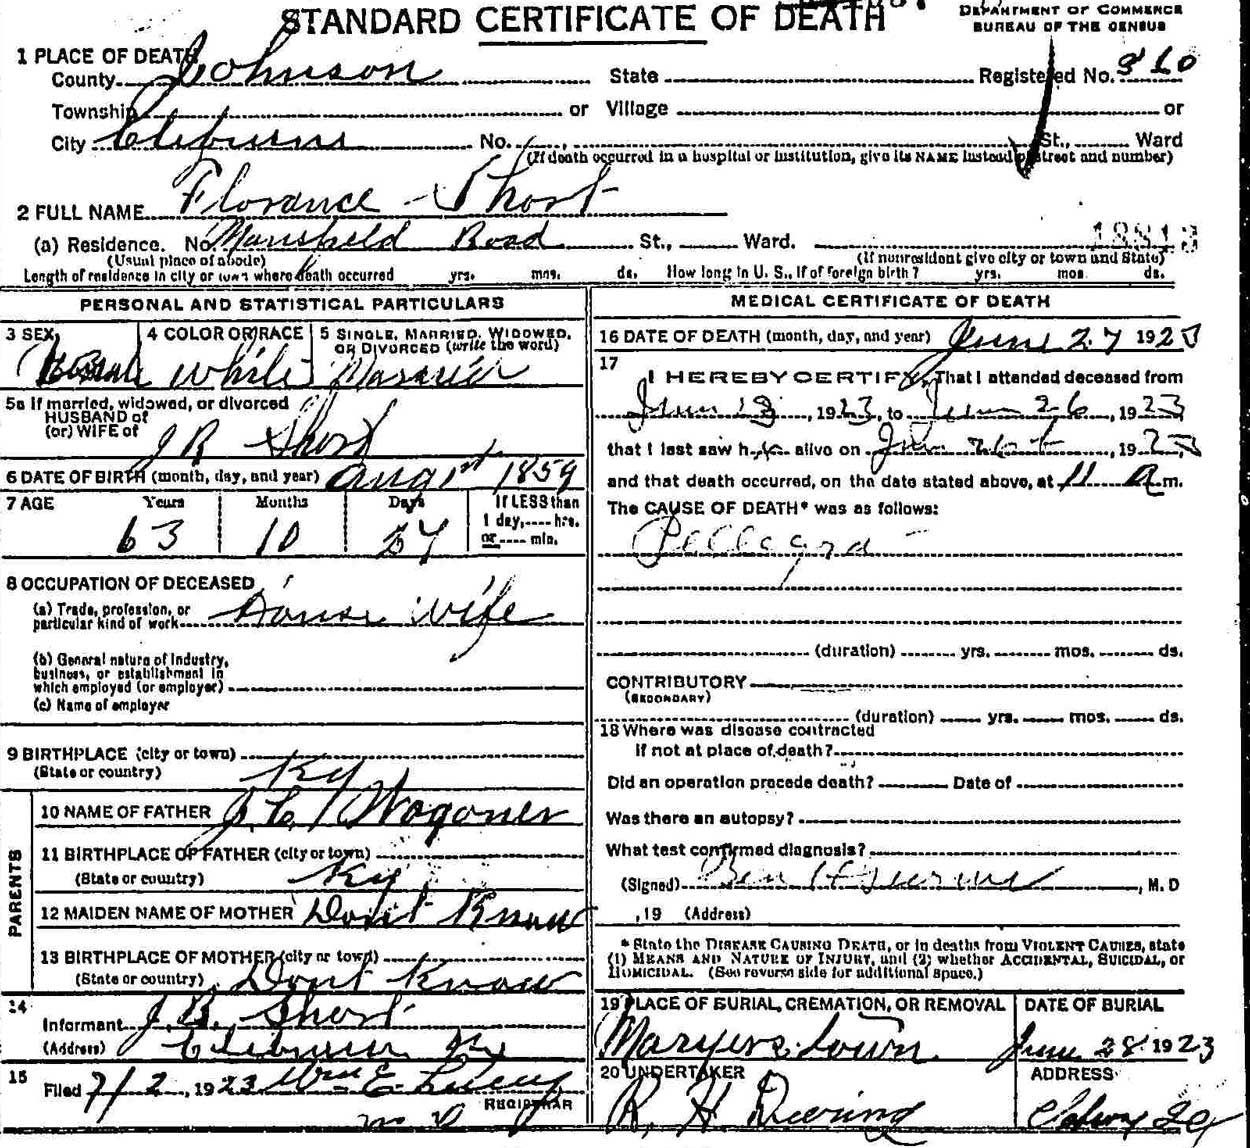 STANDARD CERTIFICATE OF DEATH
DEPARTMENT OF COMMERCE
BUREAU OF THE CENSUS
1 PLACE OF DEATH
County Johnson State Registered No. 810
Township or Village or
City Cleburne No. St., Ward
(If death occurred in a hospital or institution, give its NAME instead of street and number)
2 FULL NAME Florance Short
(a) Residence. No. Mansfield Road St., Ward.
(Usual place of abode) (If nonresident give city or town and State)
Length of residence in city or town where death occurred yrs. mos. ds. How long in U. S., if of foreign birth? yrs. mos. ds.
PERSONAL AND STATISTICAL PARTICULARS
3 SEX 4 COLOR OR RACE 5 SINGLE, MARRIED, WIDOWED, OR DIVORCED (write the word)
White Married
5a If married, widowed, or divorced
HUSBAND of
(or) WIFE of J R Short
6 DATE OF BIRTH (month, day, and year) Aug 1st 1859
7 AGE Years Months Days If LESS than
1 day, hrs.
or min.
63 10 27
8 OCCUPATION OF DECEASED
(a) Trade, profession, or
particular kind of work House Wife
(b) General nature of Industry,
business, or establishment in
which employed (or employer)
(c) Name of employer
9 BIRTHPLACE (city or town)
(State or country) Ky
PARENTS
10 NAME OF FATHER J. C. Wagoner
11 BIRTHPLACE OF FATHER (city or town)
(State or country) Ky
12 MAIDEN NAME OF MOTHER Dont Know
13 BIRTHPLACE OF MOTHER (city or town)
(State or country) Dont Know
14
Informant J. R. Short
(Address) Cleburne Tex
15
Filed 7/2, 1923 Wm E
REGISTRAR
MEDICAL CERTIFICATE OF DEATH
16 DATE OF DEATH (month, day, and year) June 27 1923
17
I HEREBY CERTIFY, That I attended deceased from
June 13, 1923, to June 26, 1923
that I last saw her alive on June 26, 1923
and that death occurred, on the date stated above, at 11 a m.
The CAUSE OF DEATH* was as follows:
Pellegra
(duration) yrs. mos. ds.
CONTRIBUTORY
(SECONDARY)
(duration) yrs. mos. ds.
18 Where was disease contracted
if not at place of death?
Did an operation precede death? Date of
Was there an autopsy?
What test confirmed diagnosis?
(Signed) Ben H , M. D
, 19 (Address)
* State the DISEASE CAUSING DEATH, or in deaths from VIOLENT CAUSES, state
(1) MEANS AND NATURE OF INJURY, and (2) whether ACCIDENTAL, SUICIDAL, or
HOMICIDAL. (See reverse side for additional space.)
19 PLACE OF BURIAL, CREMATION, OR REMOVAL DATE OF BURIAL
June 28 1923
20 UNDERTAKER ADDRESS
R. H. Deering